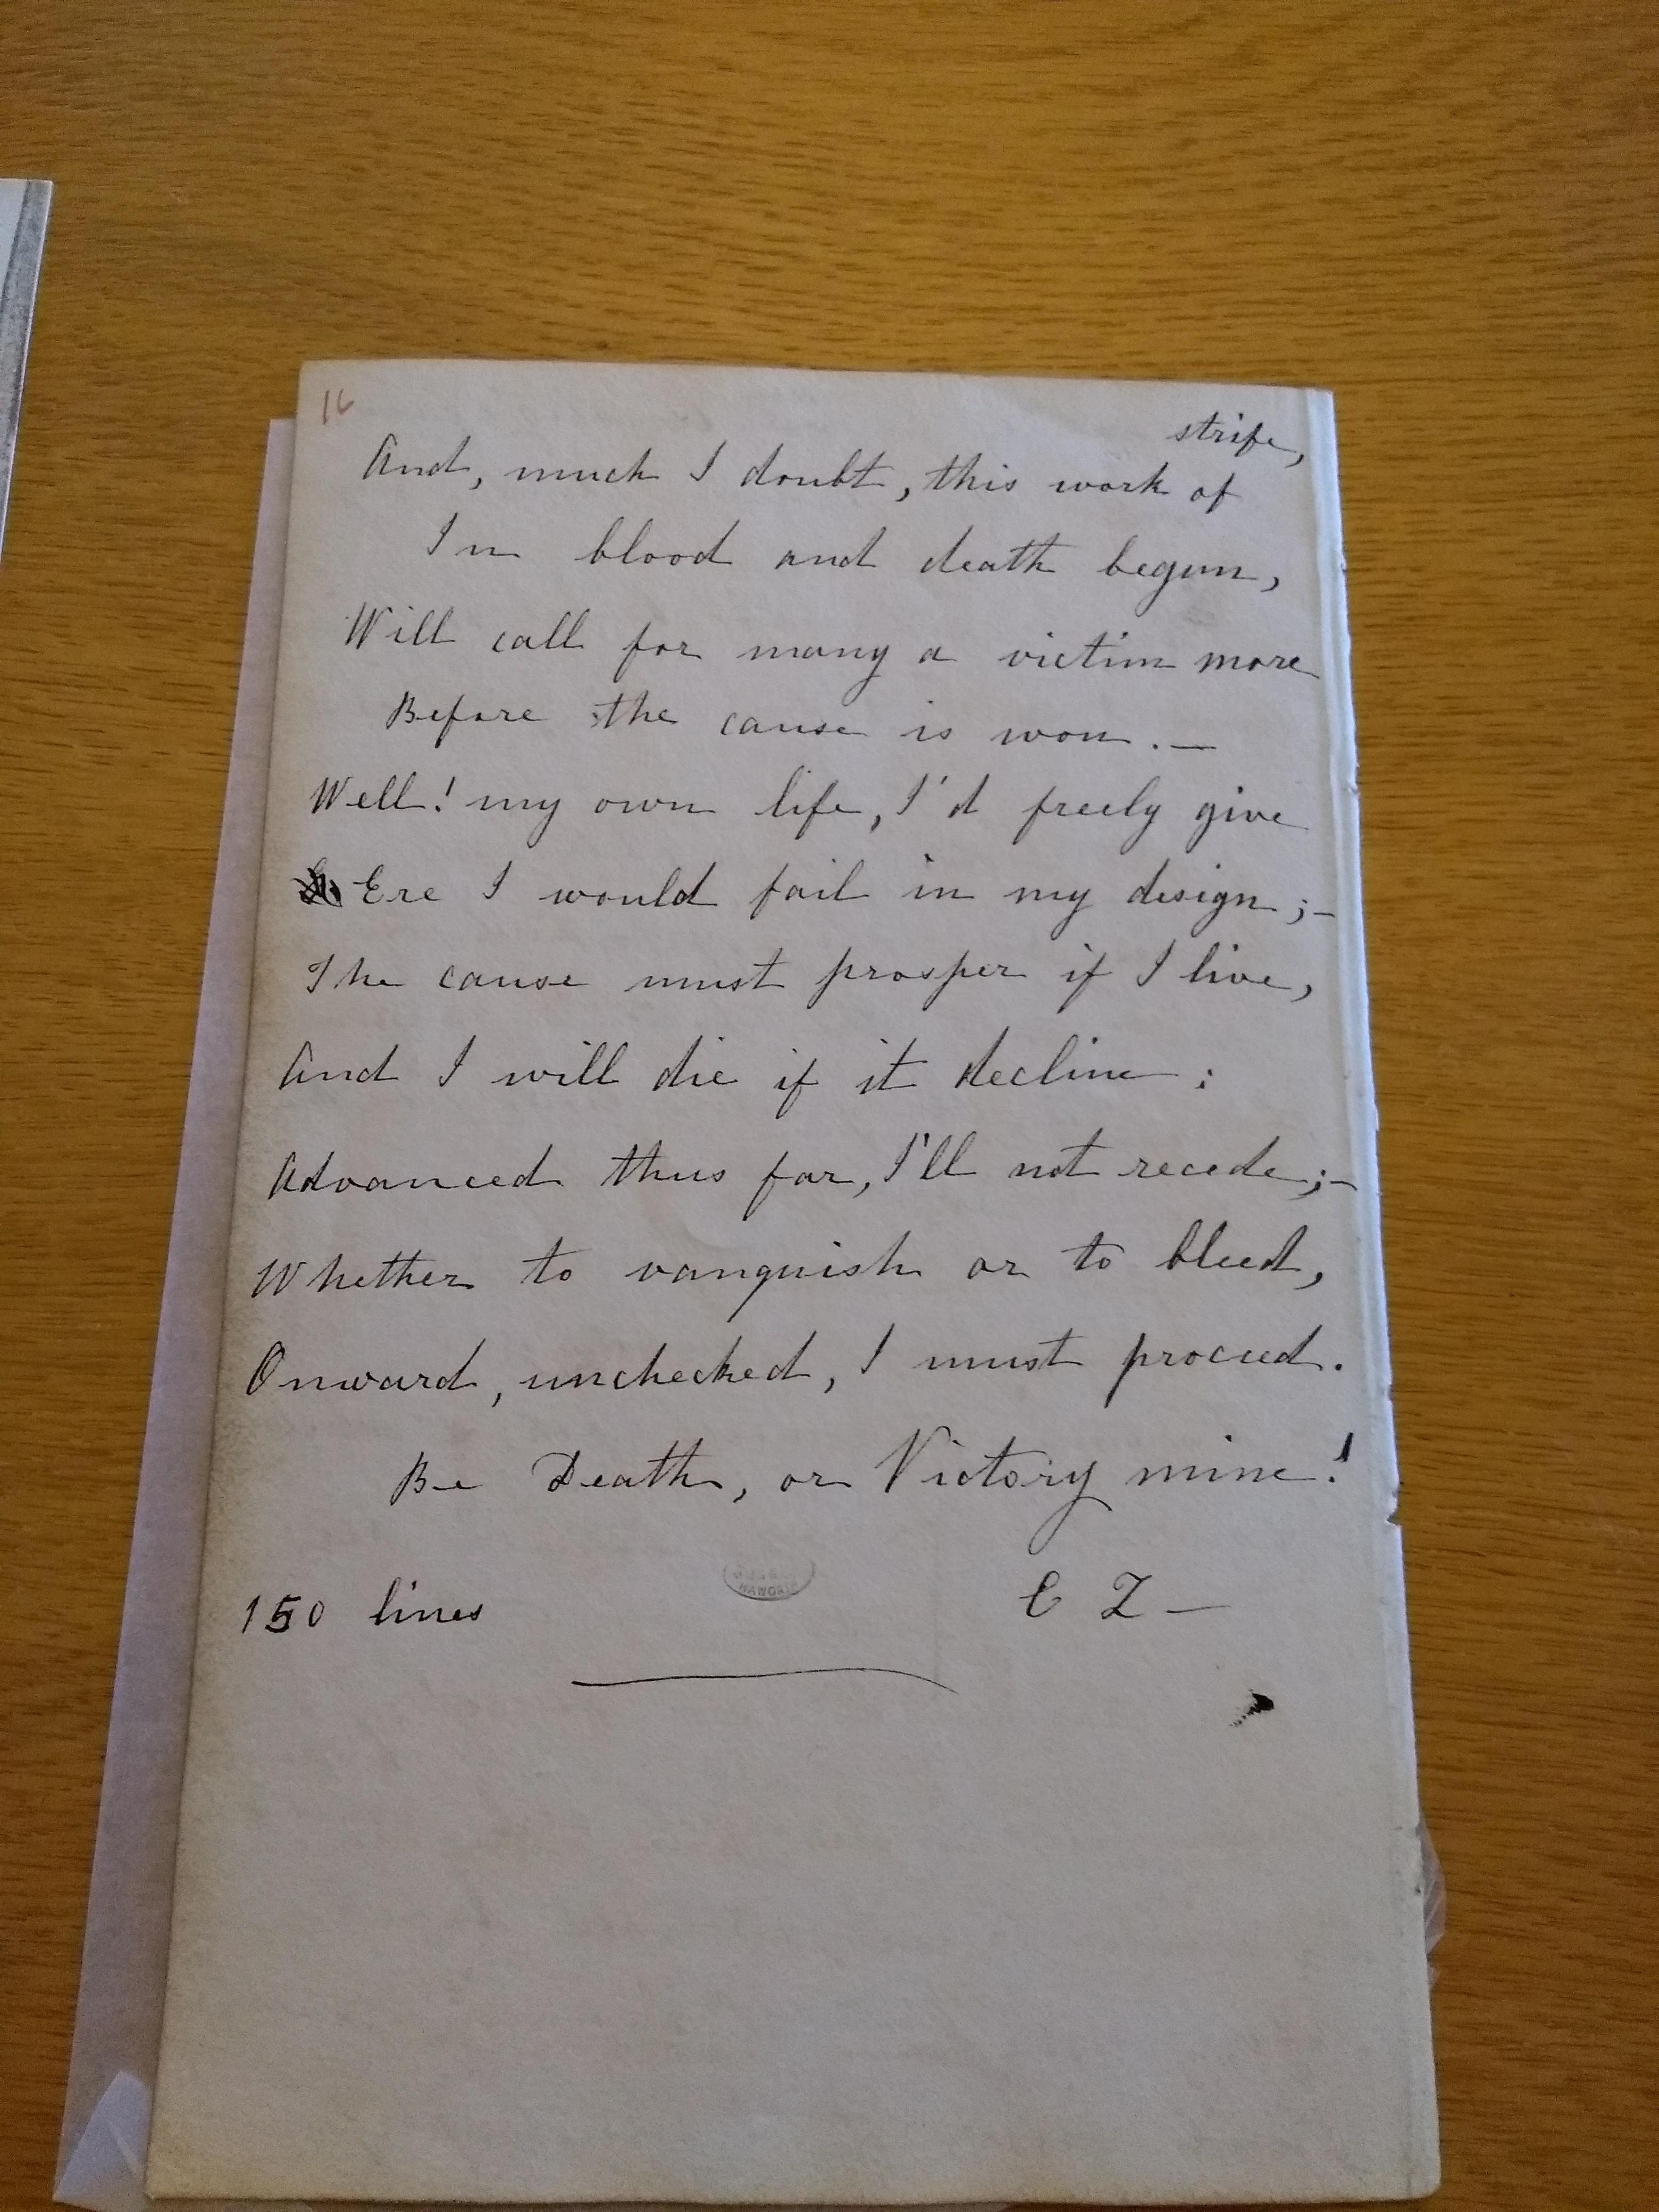 16
And, much I doubt, this work of strife,
In blood and death begun,
Will call for many a victim more
Before the cause is won. —
Well! my own life, I'd freely give
Ere I would fail in my design;—
The cause must prosper if I live,
And I will die if it decline:
Advanced thus far, I'll not recede;—
Whether to vanquish or to bleed,
Onward, unchecked, I must proceed.
Be Death, or Victory mine!
E Z —
150 lines
HAWORTH